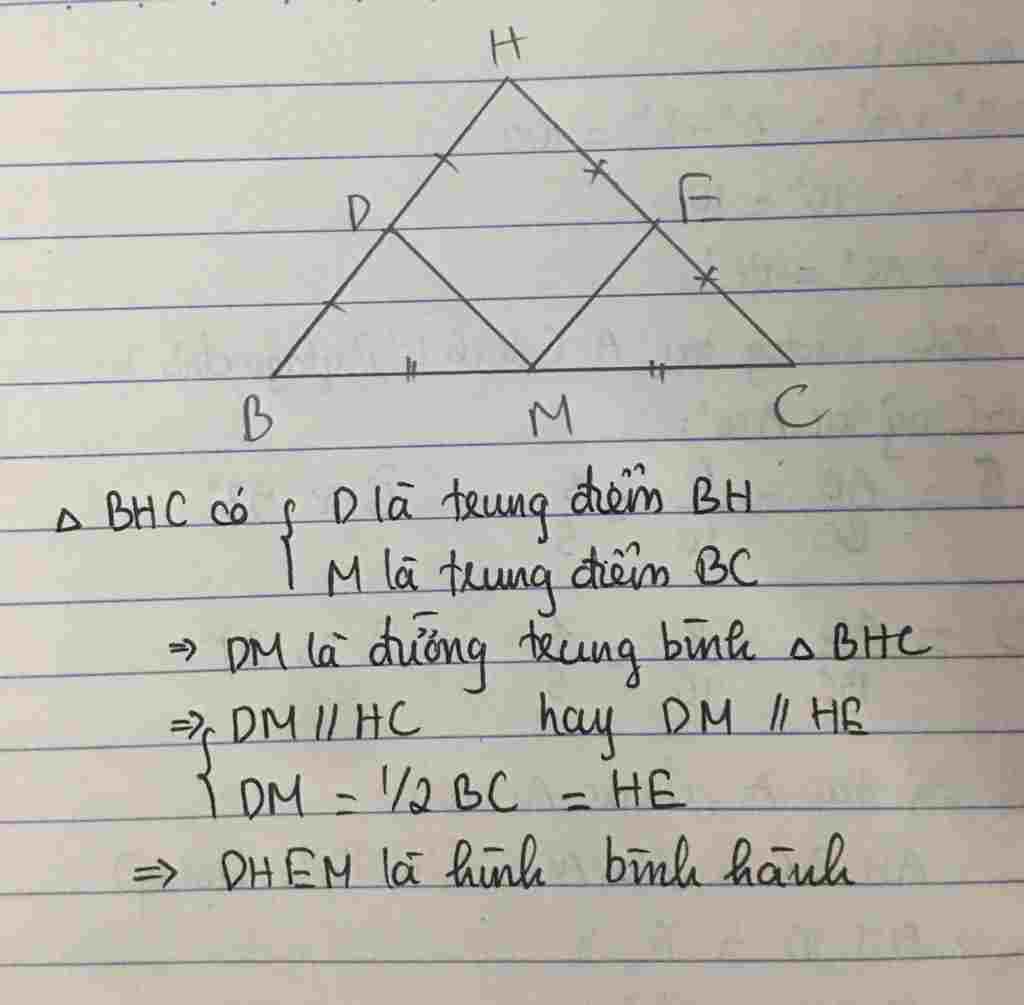 H
D
E
B
M
C
Δ BHC có { D là trung điểm BH
M là trung điểm BC
=> DM là đường trung bình Δ BHC
=> { DM // HC hay DM // HE
DM = 1/2 BC = HE
=> DHEM là hình bình hành